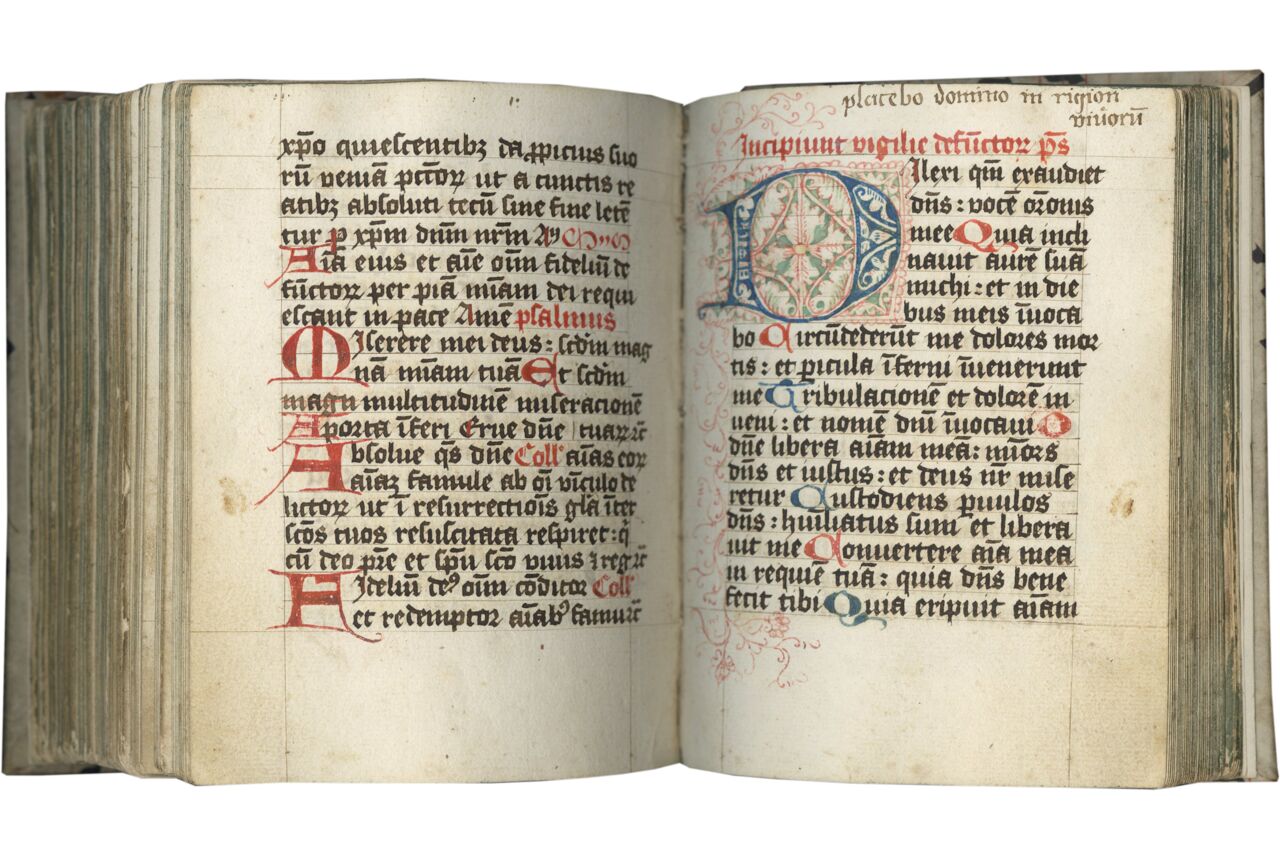 xp̄o quiescentibꝫ da ꝓpicius suo
rū veniā pctōꝝ ut a cunctis re
atibꝫ absoluti tecū sine fine letē
tur ꝑ xp̄m dnūm nrm̄
Aīa eius et aīe oīm fideliū de
fūctoꝝ per piā mīam dei requi
escant in pace Amē psalmus
Miserere mei deus : scdm̄ mag
nā mīam tuā Et scdm̄
magn multitudinē miseracionē
A porta īferi Erue dn̄e tuaꝝ ꝛc̄
Absolue qs̄ dn̄e Coll' aīas eoꝝ
aīaꝫ famule ab oī vīculo de
lictoꝝ ut ī resurrectiōis glā īter
scōs tuos resuscitata respiret : q̄
cū deo pr̄e et spū scō viuis ⁊ regꝛc̄
Fideliū deꝰ oīm cōditor Coll'
et redemptor aīabꝰ famuꝛc̄
placebo domino in rigion
viuorū
Incipiunt vigilie defūctoꝝ ps̄
Dileri qm̄ exaudiet
dn̄s : vocē orōnis
mee Quia incli
nauit aurē suā
michi : et in die
bus meis īuoca
bo Circūdederūt me dolores mor
tis : et ꝑicula īferni īuenerunt
me Tribulacionē et dolorē in
ueni : et nomē dnī īuocaui O
dn̄e libera aīam meā : mīors
dn̄s et iustus : et deus nr̄ mise
retur Custodiens ꝑuulos
dn̄s : huīliatus sum et libera
uit me Conuertere aīa mea
in requiē tuā : quia dn̄s bene
fecit tibi Quia eripuit aīam